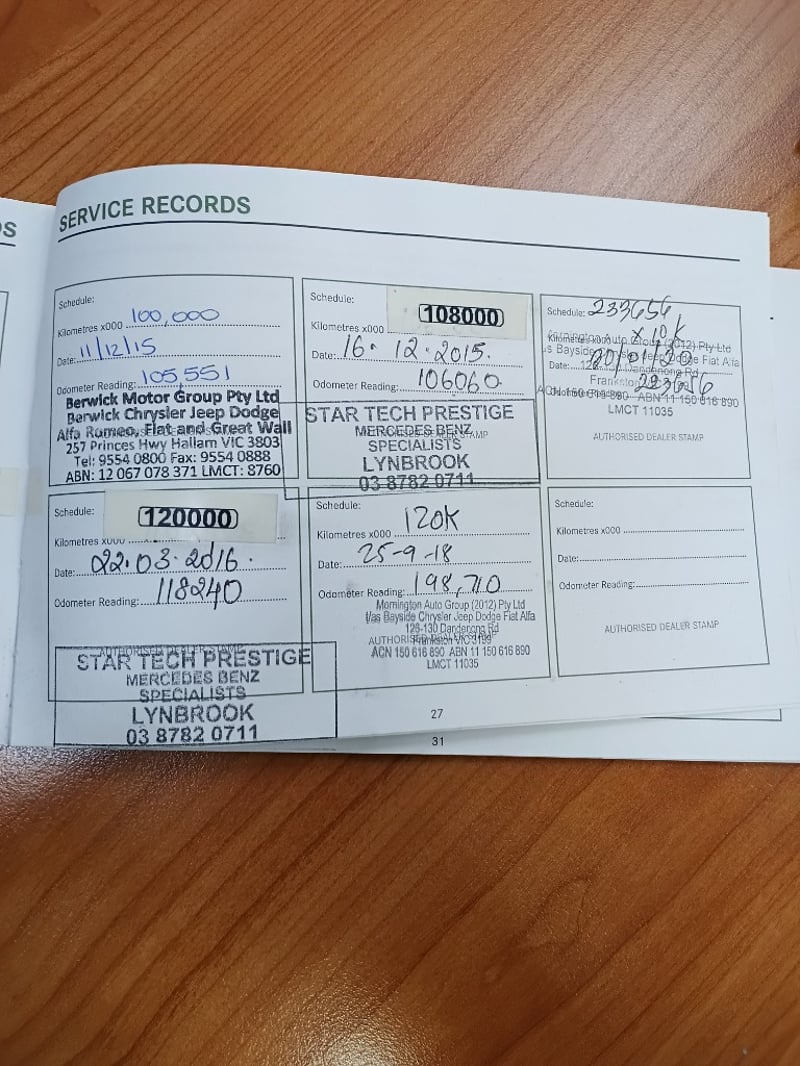 S
SERVICE RECORDS
Schedule:
Kilometres x000 100,000
Date: 11/12/15
Odometer Reading: 105,551
Berwick Motor Group Pty Ltd
Berwick Chrysler Jeep Dodge
Alfa Romeo, Fiat and Great Wall
257 Princes Hwy Hallam VIC 3803
Tel: 9554 0800 Fax: 9554 0888
ABN: 12 067 078 371 LMCT: 8760
Schedule:
108000
Kilometres x000
Date: 16. 12. 2015.
Odometer Reading: 106060
STAR TECH PRESTIGE
MERCEDES BENZ
SPECIALISTS
LYNBROOK
03 8782 0711
Schedule: 233656
Kilometres x000 x 10K
Mornington Auto Group (2012) Pty Ltd
Bayside Chrysler Jeep Dodge Fiat Alfa
Date: 20/01/20
Dandenong Rd
Frankston
233656
ABN 11 150 616 890
LMCT 11035
AUTHORISED DEALER STAMP
Schedule:
120000
Kilometres x000
Date: 22.03.2016.
Odometer Reading: 118240
AUTHORISED DEALER STAMP
STAR TECH PRESTIGE
MERCEDES BENZ
SPECIALISTS
LYNBROOK
03 8782 0711
Schedule:
Kilometres x000 120K
Date: 25-9-18
Odometer Reading: 198,710
Mornington Auto Group (2012) Pty Ltd
t/as Bayside Chrysler Jeep Dodge Fiat Alfa
126-130 Dandenong Rd
AUTHORISED
Frankston VIC 3199
ACN 150 616 890 ABN 11 150 616 890
LMCT 11035
Schedule:
Kilometres x000
Date:
Odometer Reading:
AUTHORISED DEALER STAMP
27
31